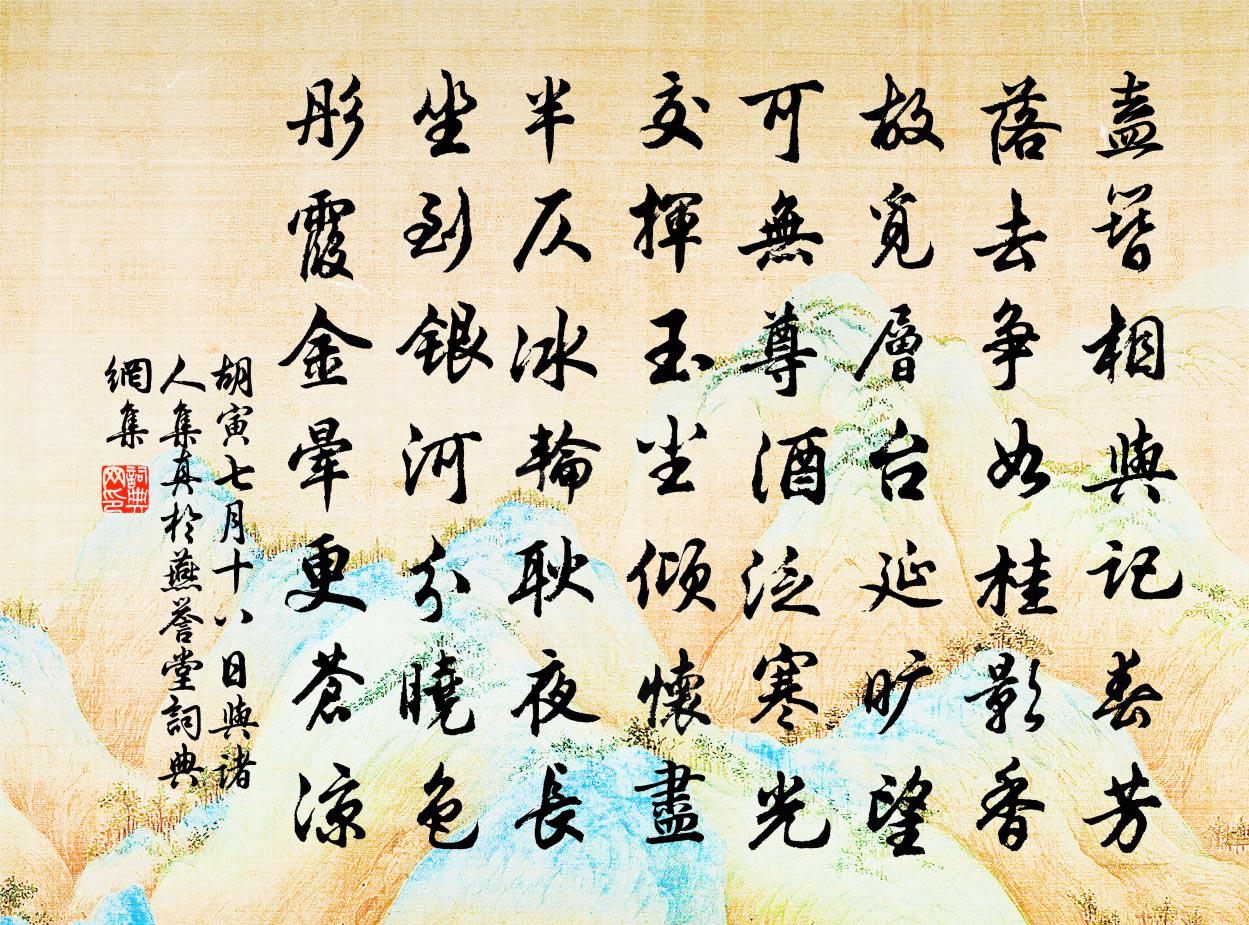 盍簪相與記春芳
落去爭如桂影香
故覓層台延曠望
可無尊酒泛寒光
交揮玉尘傾懷盡
半仄冰輪耿夜長
坐到銀河分曉色
彤霞金暈更蒼涼
胡寅七月十八日與諸
人集真於燕譽堂詞典
網集
詞典
网印